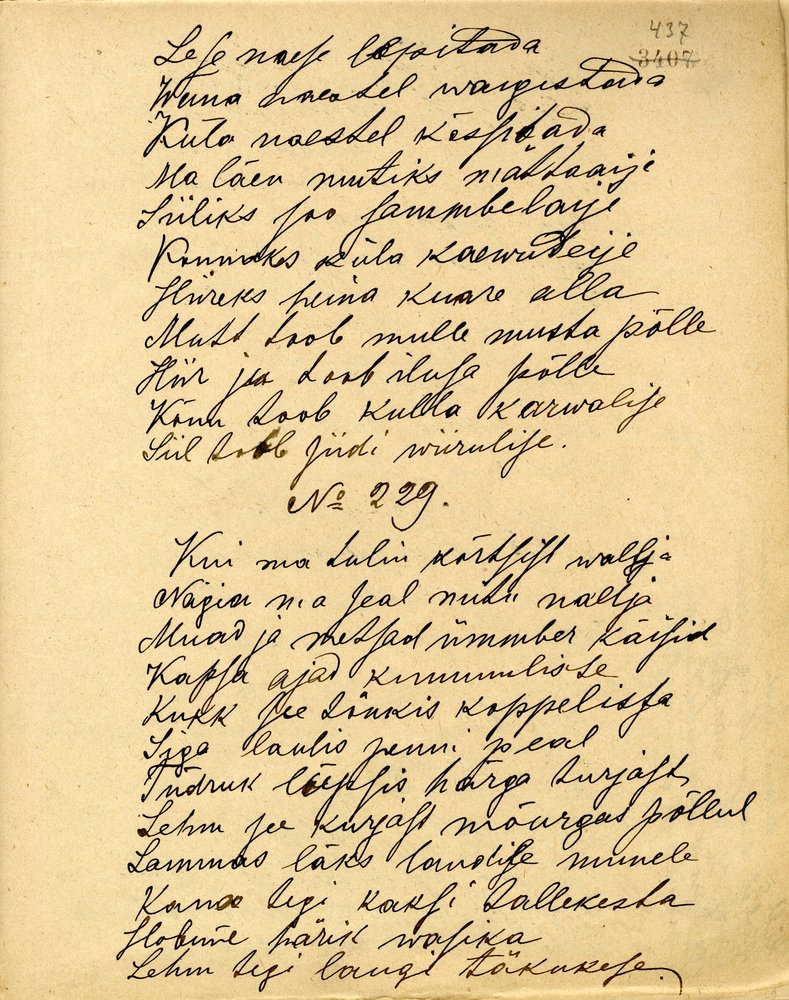 437
3407
Lese naese lepitada
Wana naestel waigistada
Küla naestel kässitada
Ma läen mutiks mättaaije
Siiliks soo sammbelaije
Konnaks küla kaewuteije
Hiireks heina kuare alla
Mutt toob mulle musta põlle
Hiir ju toob ilusa põlle
Könn toob kulla karwalise
Siil toob siidi wiirulise.
No 229.
Kui ma tulin kõrtsist wallja
Nägin ma seal mitu nallja
Muad ja metsad ümmber käisid
Kapsa ajad kummuliste
Kukk see tõukis koppelista
Siga laulis penni peal
Tüdruk lüpsis härga turjast
Lehm see kurjast mõurgas põllul
Lammas läks laudise munele
Kana tegi kaksi tallekesta
Hobune härik wasika
Lehm tegi laugi täkukese.